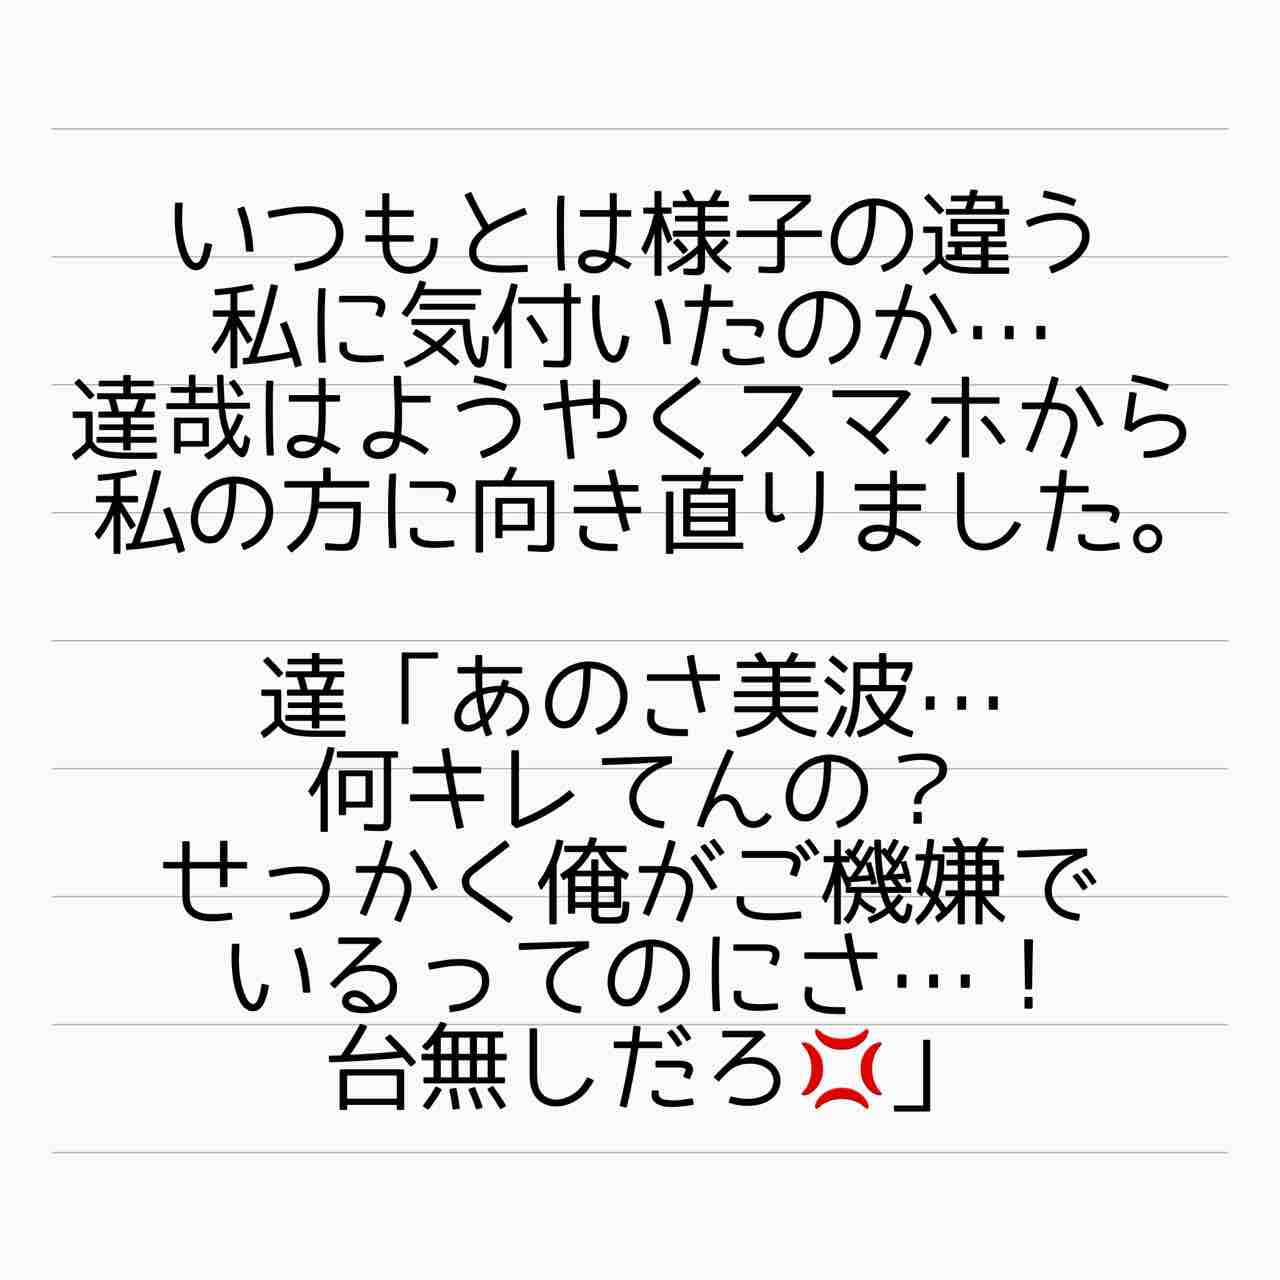 いつもとは様子の違う
私に気付いたのか…
達哉はようやくスマホから
私の方に向き直りました。
達「あのさ美波…
何キレてんの？
せっかく俺がご機嫌で
いるってのにさ…！
台無しだろ💢」